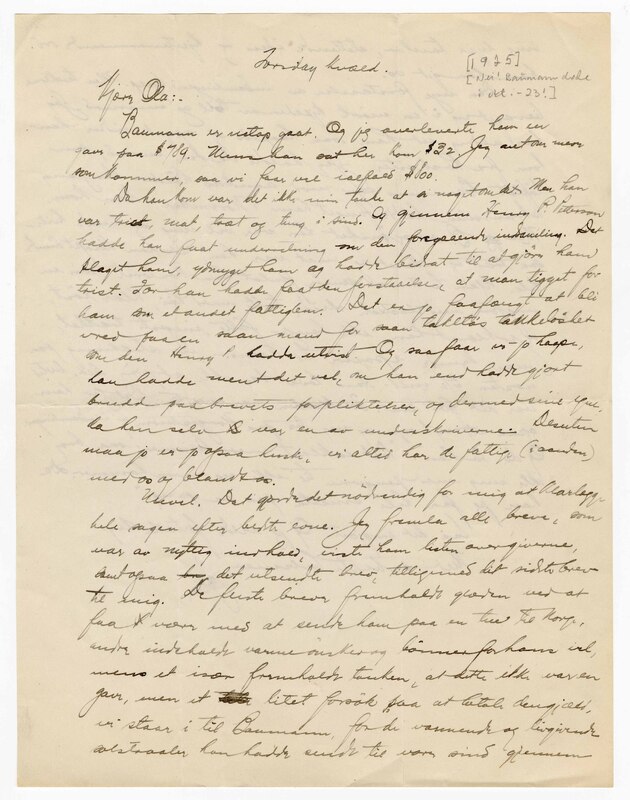 Torsdag kvæld.
[1925]
[Nei! Baumann døde
i okt. -23!]
Kjære Ola:-
Baumann er netop gaat. Og jeg overleverte ham en
gave paa $784. Mens han sat her kom $32 Jeg vet om mere
som kommer, saa vi faar vel ialfald $800.
Da han kom var det ikke min tanke at si noget om det. Men han
var trist, mat, træt og tung i sind. Og gjennem Henry P. Peterson
hadde han faat underretning om den foregaaende indsamling. Det
hadde slaget ham, ydmyget ham og hadde bidrat til at gjøre ham
trist. For han hadde faat den forstaaelse, at man tigget for
ham som et andet fattiglem. Det er jo faafængt at bli
vred paa en saan mand for saan taktløs tankeløshet
som den Henry P. hadde utvist. Og saa faar vi jo haape,
han hadde ment det vel, om han end hadde gjort
brudd paa brevets forpliktelser, og dermed sine egne
da han selv var en av underskriverne. Desuten
maa jo vi ogsaa huske, vi altid har de fattige (i aanden)
med os og blandt os.
Nuvel. Det gjorde det nødvendig for mig at klarlegge
hele sagen efter bedste evne. Jeg fremla alle breve, som
var av nyttig indhold, viste ham listen over giverne,
og det utsendte brev, tilligemed dit sidste brev
til mig. De fleste breve fremholdt glæden ved at
faa være med at sende ham paa en tur til Norge,
andre indeholdt varme ønsker og bønner for hans vel,
mens et især fremholdt tanken, at dette ikke var en
gave, men et litet forsøk paa at betale den gjæld,
vi staar i til Baumann, for de varmende og livgivende
solstraaler han hadde sendt til vore sind gjennem